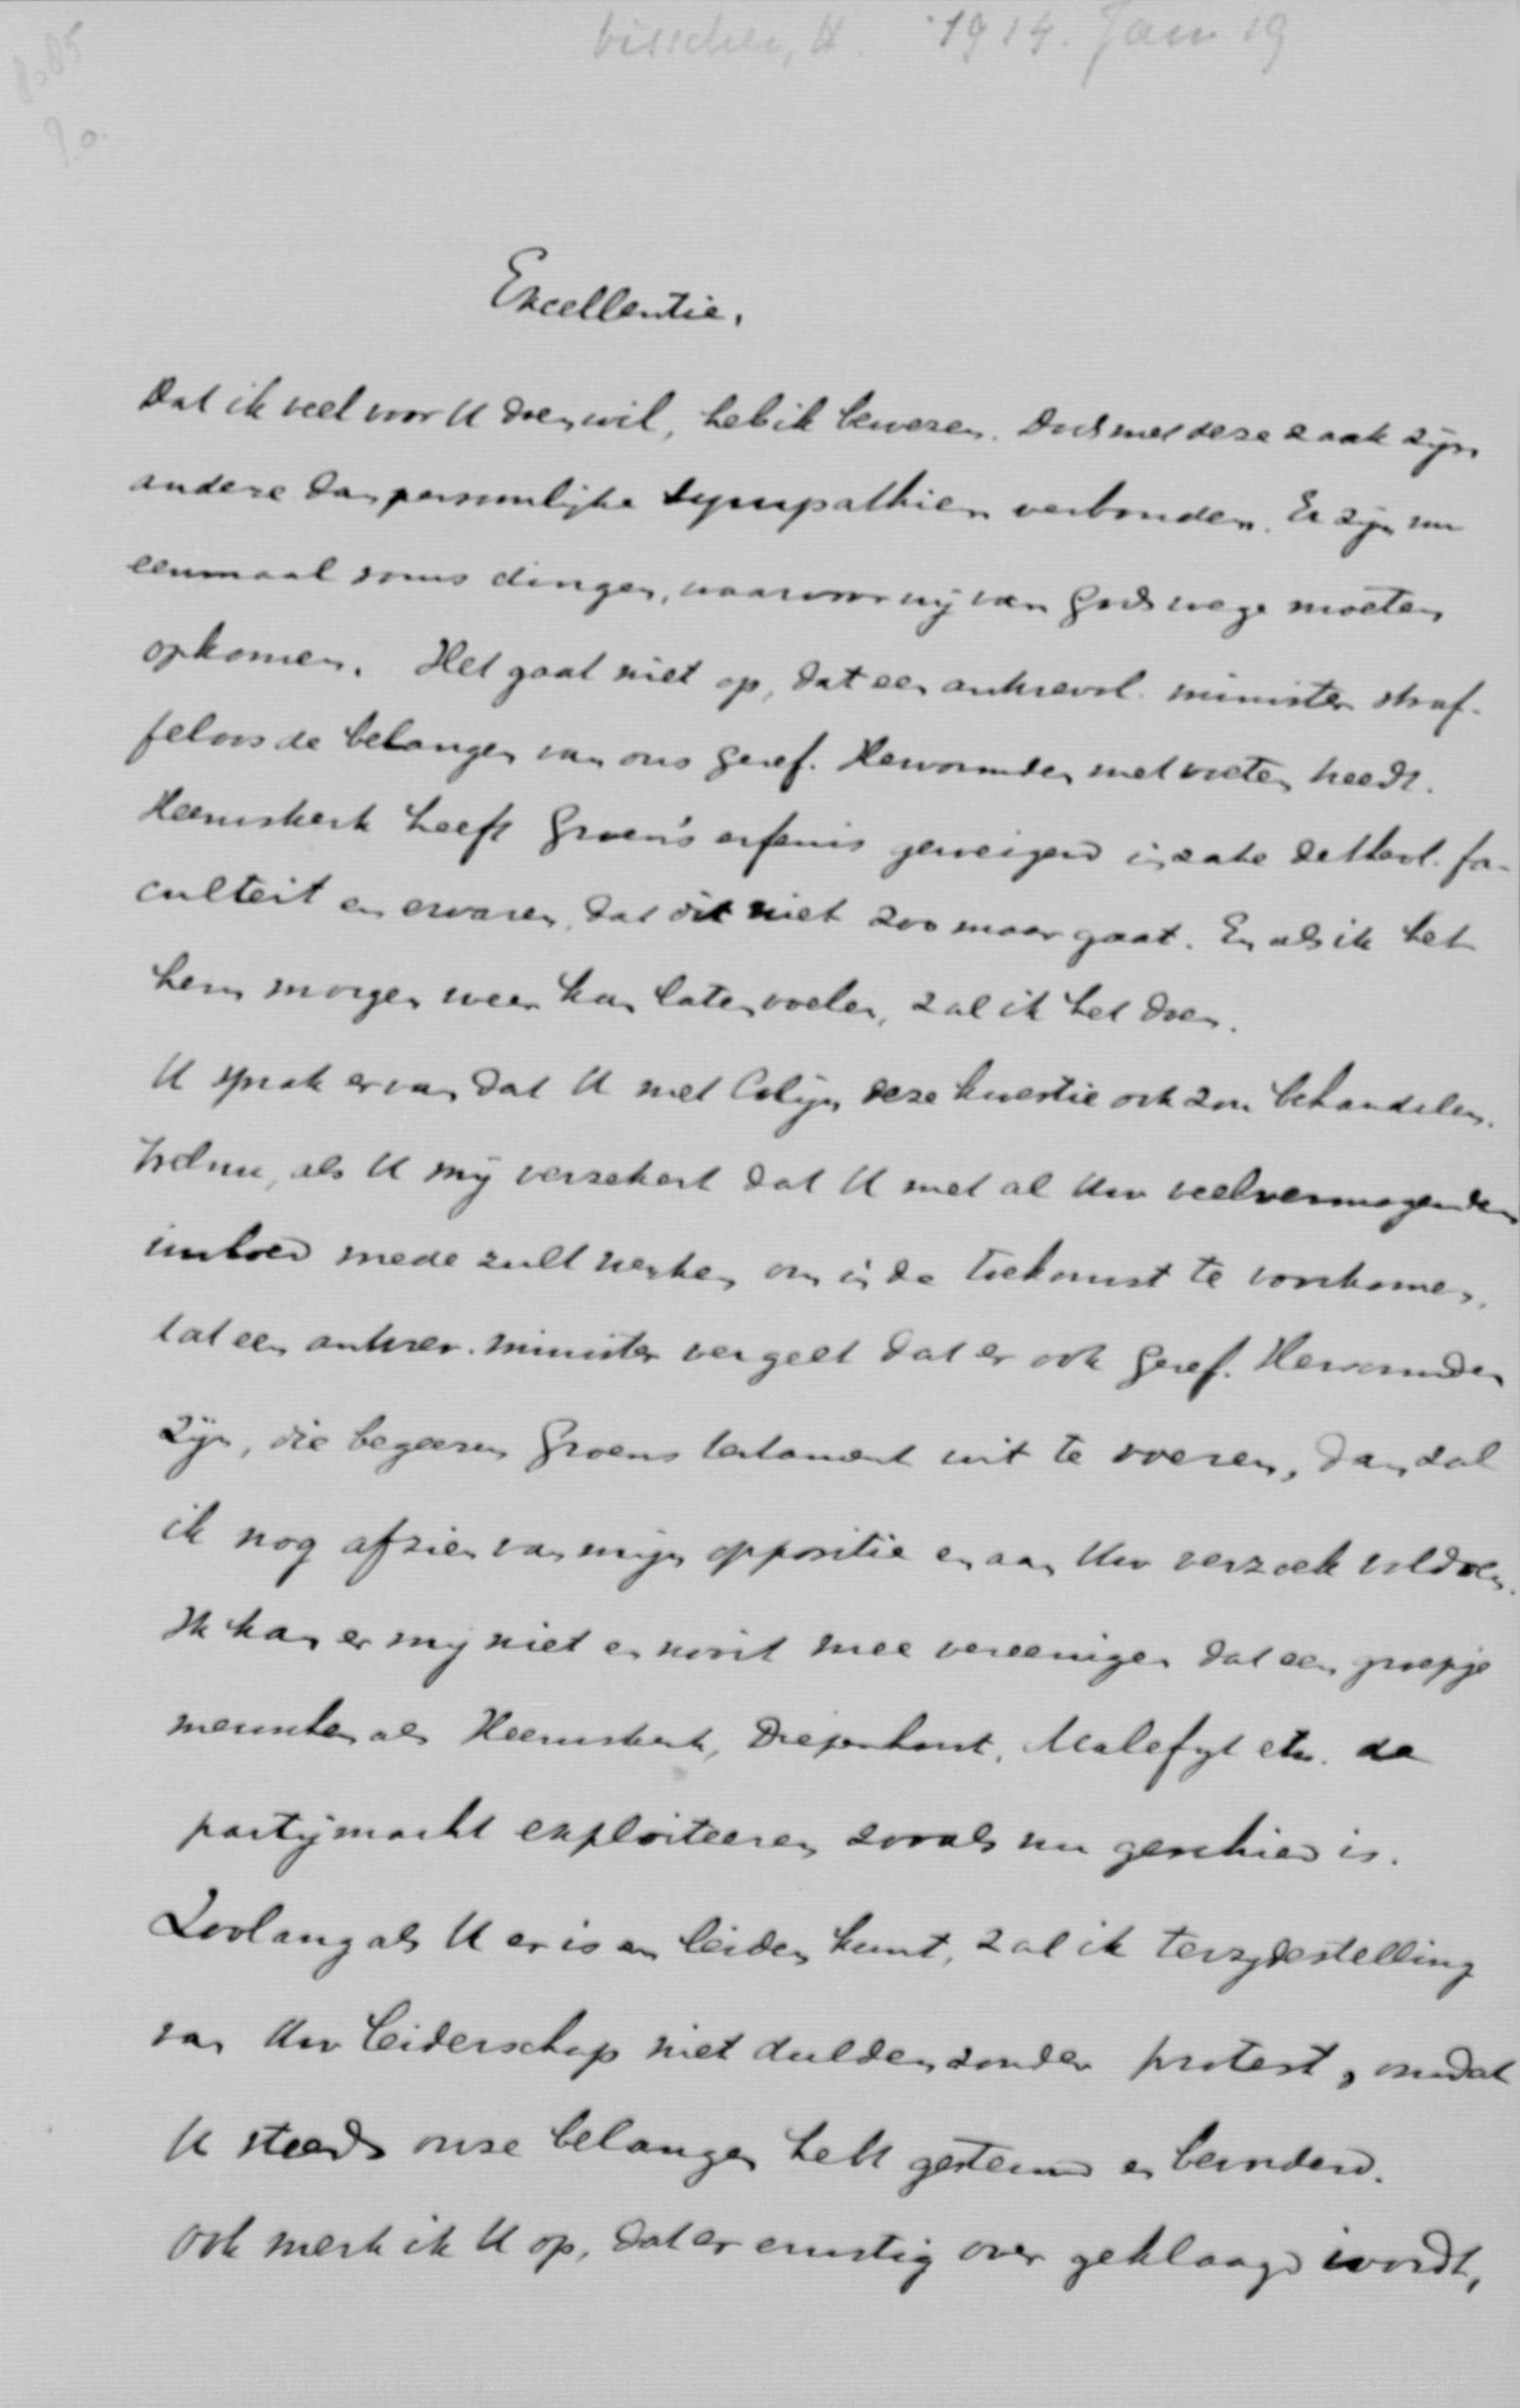 Visscher, H. 1914. Jan 19
8085
90.
Excellentie,
Dat ik veel voor U doen wil, heb ik bewezen. Doch met deze zaak zijn
andere dan persoonlijke sympathieën verbonden. Er zijn nu
eenmaal soms dingen, waarvoor wij van Godswege moeten
opkomen. Het gaat niet op, dat een antirevol. minister straf-
feloos de belangen van ons Geref. Hervormden met voeten treedt.
Heemskerk heeft Groen's erfenis geweigerd inzake de theol. fa-
culteit en ervaren, dat dit niet zoo maar gaat. En als ik het
hem morgen weer kan laten voelen, zal ik het doen.
U sprak ervan dat U met Colijn deze kwestie ook zou behandelen.
Welnu, als U mij verzekert dat U met al Uw veelvermogenden
invloed mede zult werken om in de toekomst te voorkomen,
dat een antirev. minister vergeet dat er ook Geref. Hervormden
zijn, die begeeren Groens testament uit te voeren, dan zal
ik nog afzien van mijn oppositie en aan Uw verzoek voldoen.
Ik kan er mij niet en nooit mee vereenigen dat een groepje
menschen als Heemskerk, Diepenhorst, Malefyt etc. de
partijmacht exploiteeren zooals nu geschied is.
Zoolang als U er is en leiden kunt, zal ik terzijdestelling
van Uw leiderschap niet dulden zonder protest, omdat
U steeds onze belangen hebt gesteund en bevorderd.
Ook merk ik U op, dat er ernstig over geklaagd wordt,